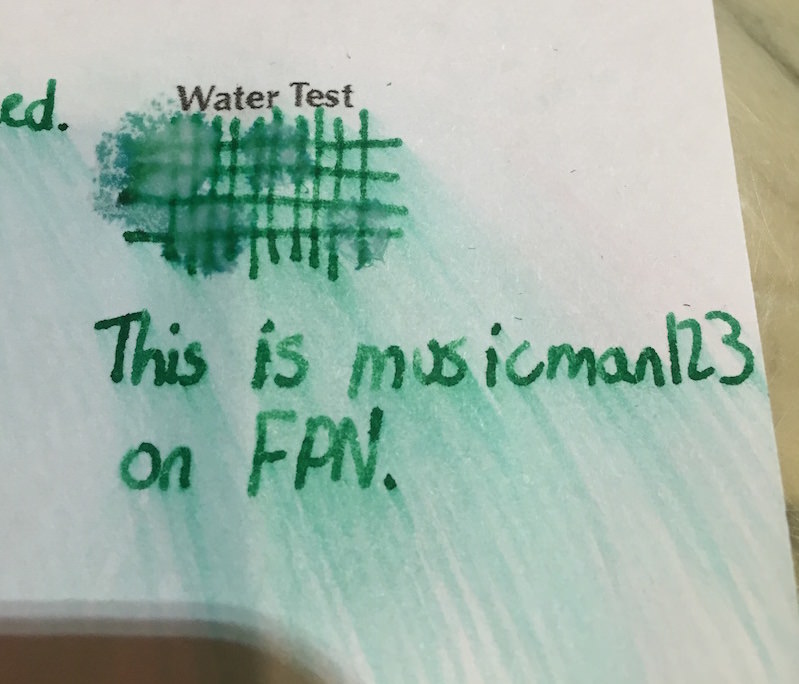 Water Test
ed.
This is musicman123
on FPN.